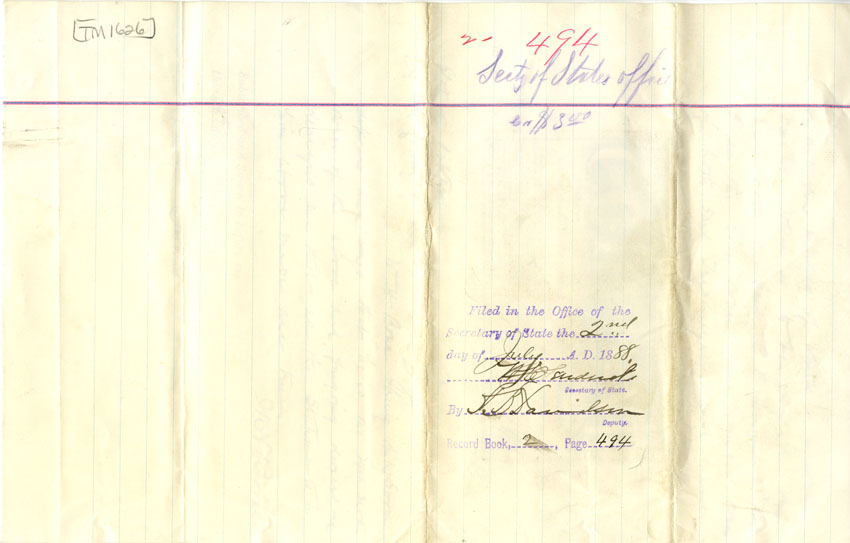 [TM1626]
2- 494
Secty of States office
Filed in the Office of the
Secretary of State the 2nd
day of July A. D. 1888,
Secretary of State.
By
Deputy.
Record Book, 2, Page 494